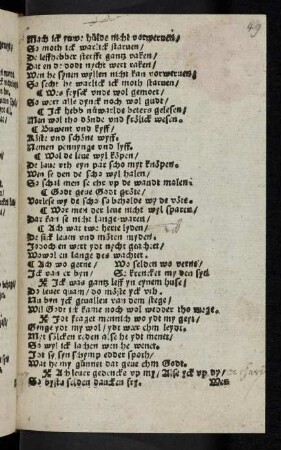 49
Mach ick yuwe hülde nicht vorweruen,
So moth ick warlick staruen/
De leffhebber sterfft gantz vaken/
Dat en de dodt nycht wert raken/
Wen he synen wyllen nicht kan vorweruen/
So secht he warlick ick moth staruen/
☾ Wes frysck vnde wol gemoet/
Go wert alle dynck noch wol gudt/
☾ Ick hebb nüwarlde beters gelesen/
Men wol tho dönde vnd frölick wesen.
☾ Buwent vnd kyff/
Rüste vnd schöne wyff.
Nemen pennynge vnd lyff.
☾ Wol de leue wyl köpen/
De laue vth eyn par scho myt knöpen.
Wen se den de scho wyl halen/
So schal men se ehr vp de wandt malen:
☾ Godt geue Godt gröte/
Vorlese wy de scho so behalde wy de vöte.
☾ Wor men der leue nicht wyl sparen/
Dar kan se nicht lange waren/
☾ Ach wat twe herte lyden/
De sick leuen vnd möten myden.
Idoch en wert ydt nycht geachtet/
Wowol en lange des wachtet.
☾ Ach wo gerne/ Wo selden wo verne/
Ick van er byn/ Se krencket my den syn
Ick was gantz leff yn eynem huse/
Do leuer quam/ do möste yck vth.
Nu byn yck geuallen van dem stege/
Wil Godt ick kame noch wol wedder tho wege.
Idt fraget mennich wo ydt my geyt/
Ginge ydt my wol/ ydt were ehm leydt.
Met sölcken reden alse he ydt menet/
So wyl ick lachen wen he wenet.
Idt sy syn schymp edder spoth/
Wat he my günnet dat geue ehm Godt.
Ach leuer gedencke vp my/ Alse yck vp dy/
So bysta selden dancken fry. Wen